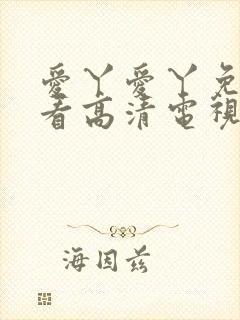 愛丫愛丫免
看高清電視
海因茲